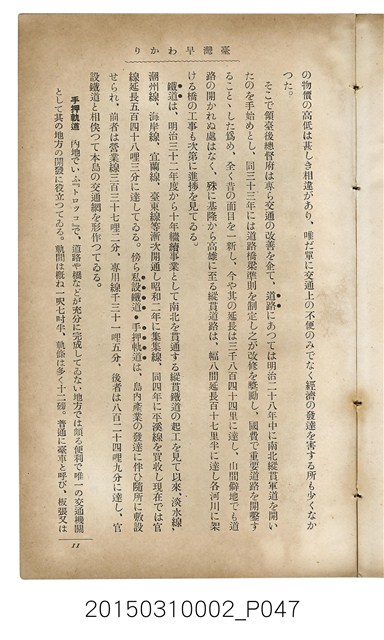 臺灣早わかり
の物價の高低は甚しき相違があり、唯だ單に交通上の不便のみでなく經濟の發達を害する所も少くなか
つた。
そこで領臺後總督府は專ら交通の改善を企て、道路にあつては明治二十八年中に南北縱貫軍道を開い
たのを手始めとし、同三十三年には道路橋梁準則を制定し之が改修を奬勵し、國費で重要道路を開鑿す
ることゝした爲め、全く昔の面目を一新し、今や其の延長は三千八百四十四里に達し、山間僻地でも道
路の開かれぬ處はなく、殊に基隆から高雄に至る縱貫道路は、幅八間延長百十七里半に達し各河川に架
ける橋の工事も次第に進捗を見てゐる。
鐵道は、明治三十二年度から十年繼續事業として南北を貫通する縱貫鐵道の起工を見て以來、淡水線、
潮州線、海岸線、宜蘭線、臺東線等漸次開通し昭和二年に集集線、同四年に平溪線を買收し現在では官
線延長五百四十八哩三分に達してゐる。傍ら私設鐵道・手押軌道は、島内產業の發達に伴ひ隨所に敷設
せられ、前者は營業線三百三十七哩二分、專用線千三十一哩五分、後者は八百二十四哩九分に達し、官
設鐵道と相俟つて本島の交通網を形作つてゐる。
手押軌道 内地でいふ『トロッコ』で、道路や橋などが充分に完成してゐない地方では頗る便利で唯一の交通機關
として其の地方の開發に役立つてゐる。軌間は概ね一呎七吋半、軌條は多く十二磅。普通に臺車と呼び、板張又は
11
20150310002_P047